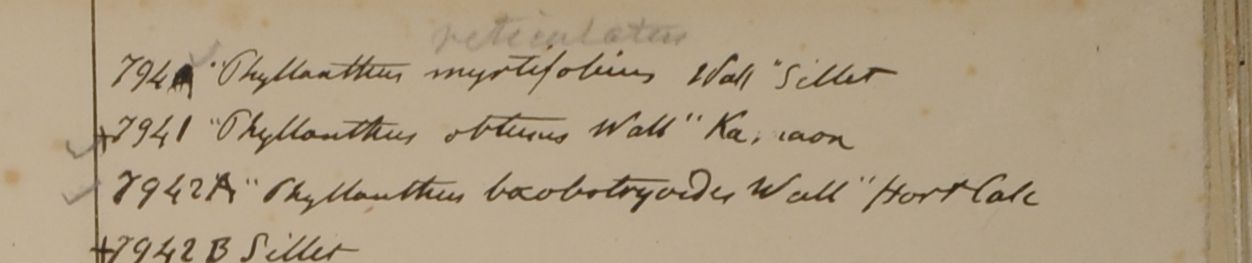 reticulatus
794 "Phyllanthus myrtifolius Wall" Sillet
+7941 "Phyllanthus obtusus Wall"
7942A "Phyllanthus baeobotryoides Wall" Hort Calc
+7942 B Sillet